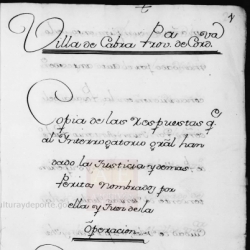 Villa de Cabra Prov. de Cord.
va
Copia de las Respuestas q.
al Interrogatorio gral han
dado la Justicia y demas
Peritos Nombrados por
ella y Juez de la
Operacion